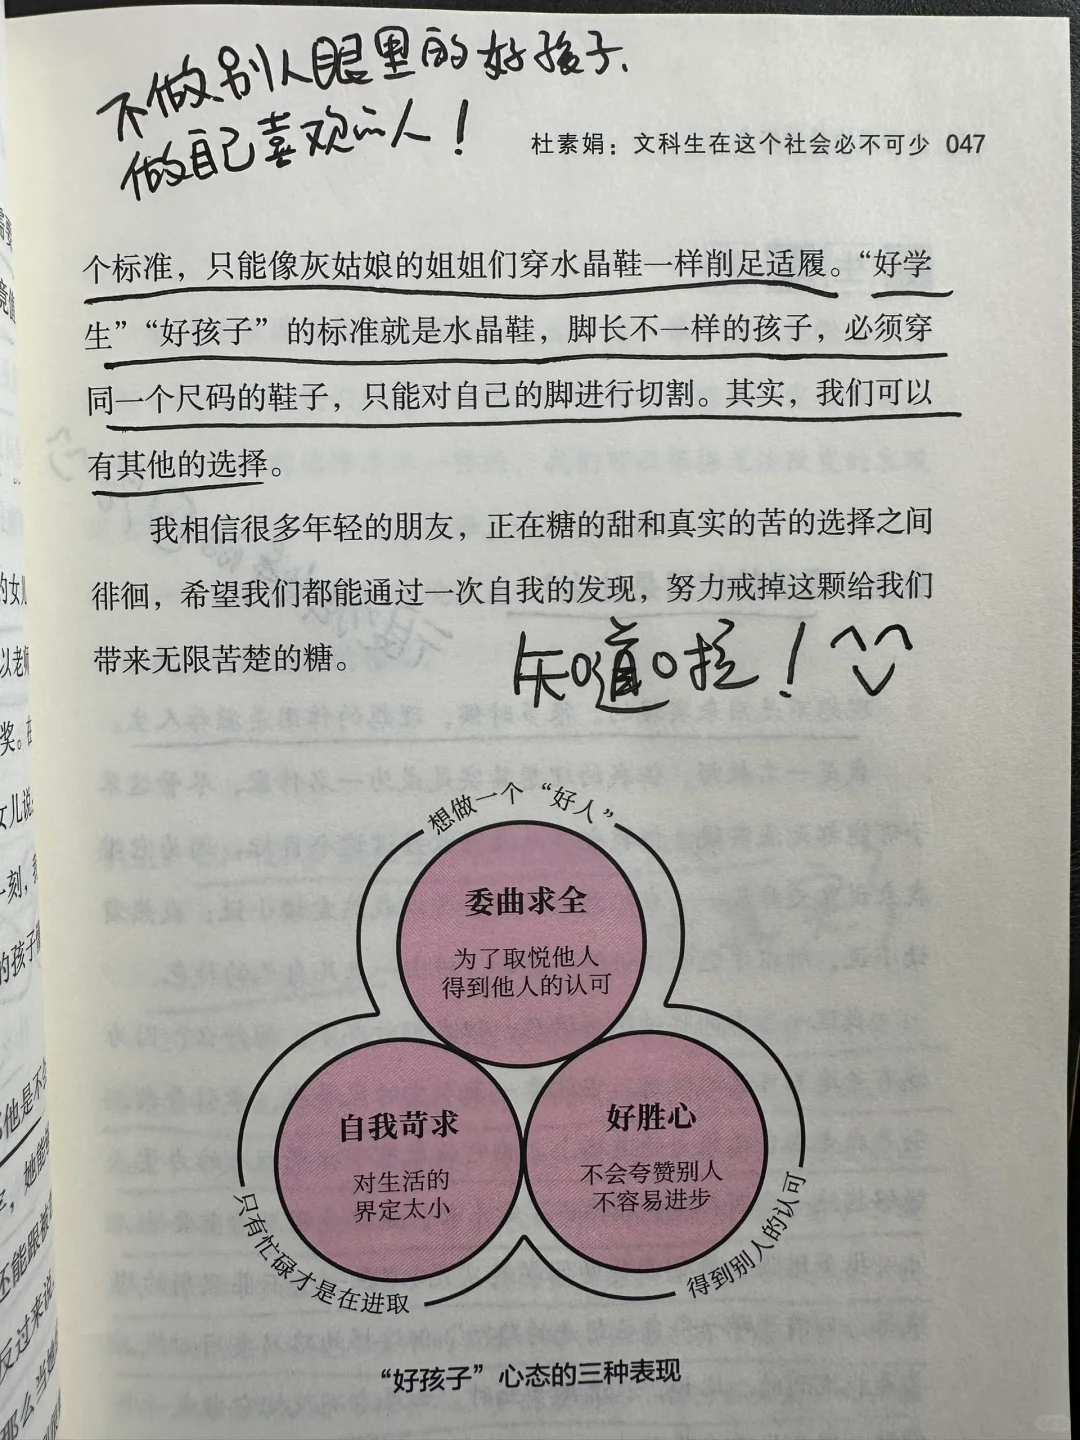 不做别人眼里的好孩子、
做自己喜欢的人！
杜素娟：文科生在这个社会必不可少 047
个标准，只能像灰姑娘的姐姐们穿水晶鞋一样削足适履。“好学
生”“好孩子”的标准就是水晶鞋，脚长不一样的孩子，必须穿
同一个尺码的鞋子，只能对自己的脚进行切割。其实，我们可以
有其他的选择。
我相信很多年轻的朋友，正在糖的甜和真实的苦的选择之间
徘徊，希望我们都能通过一次自我的发现，努力戒掉这颗给我们
带来无限苦楚的糖。
知道啦！
想做一个“好人”
委曲求全
为了取悦他人
得到他人的认可
自我苛求
对生活的
界定太小
只有忙碌才是在进取
好胜心
不会夸赞别人
不容易进步
得到别人的认可
“好孩子”心态的三种表现